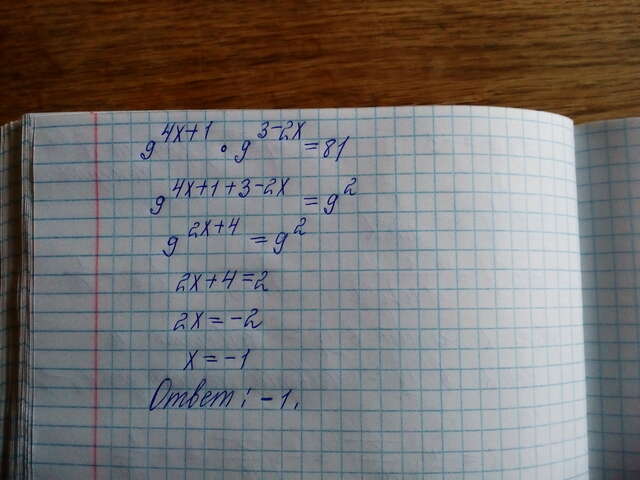 9^(4x+1) · 9^(3-2x) = 81
9^(4x+1+3-2x) = 9^2
9^(2x+4) = 9^2
2x+4=2
2x=-2
x=-1
Ответ: -1.